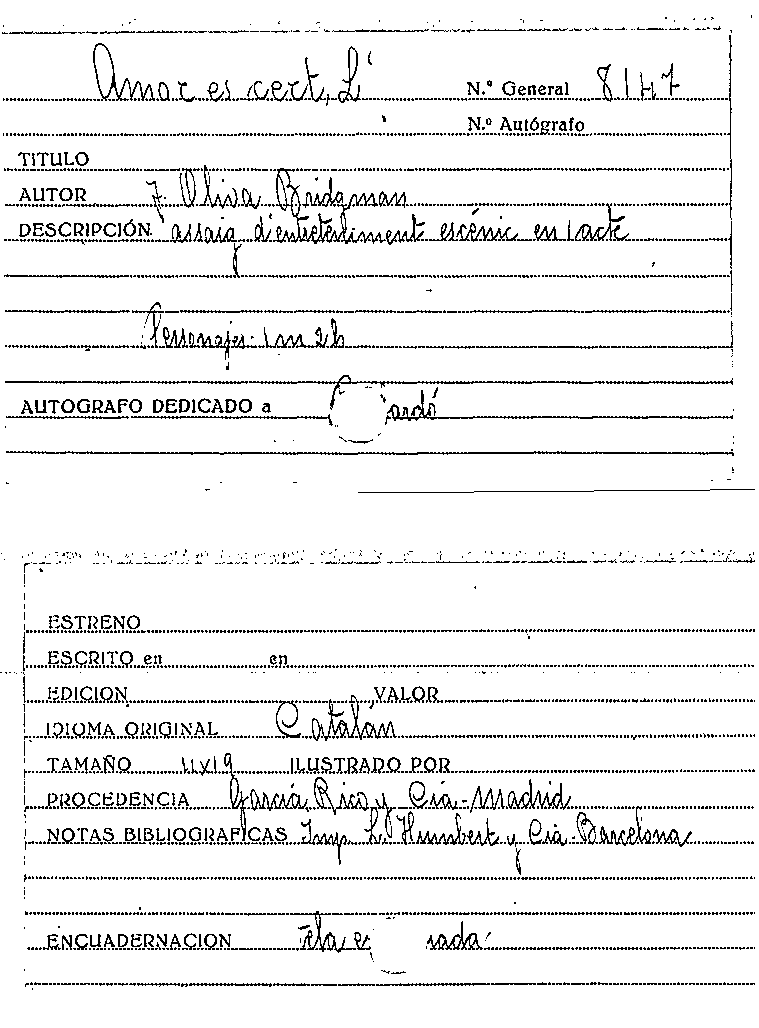 Amor es cert, L'
N.º General 8147
N.º Autógrafo
TITULO
AUTOR J. Oliva Bridgman
DESCRIPCIÓN assaig d'entreteniment escénic en 1 acte
Personajes: 1 m 2 h
AUTOGRAFO DEDICADO a ardó
ESTRENO
ESCRITO en en
EDICION VALOR
IDIOMA ORIGINAL Catalán
TAMAÑO 11x19 ILUSTRADO POR
PROCEDENCIA García Rico y Cía - Madrid
NOTAS BIBLIOGRAFICAS Imp. L. Humbert y Cía - Barcelona
ENCUADERNACION tela